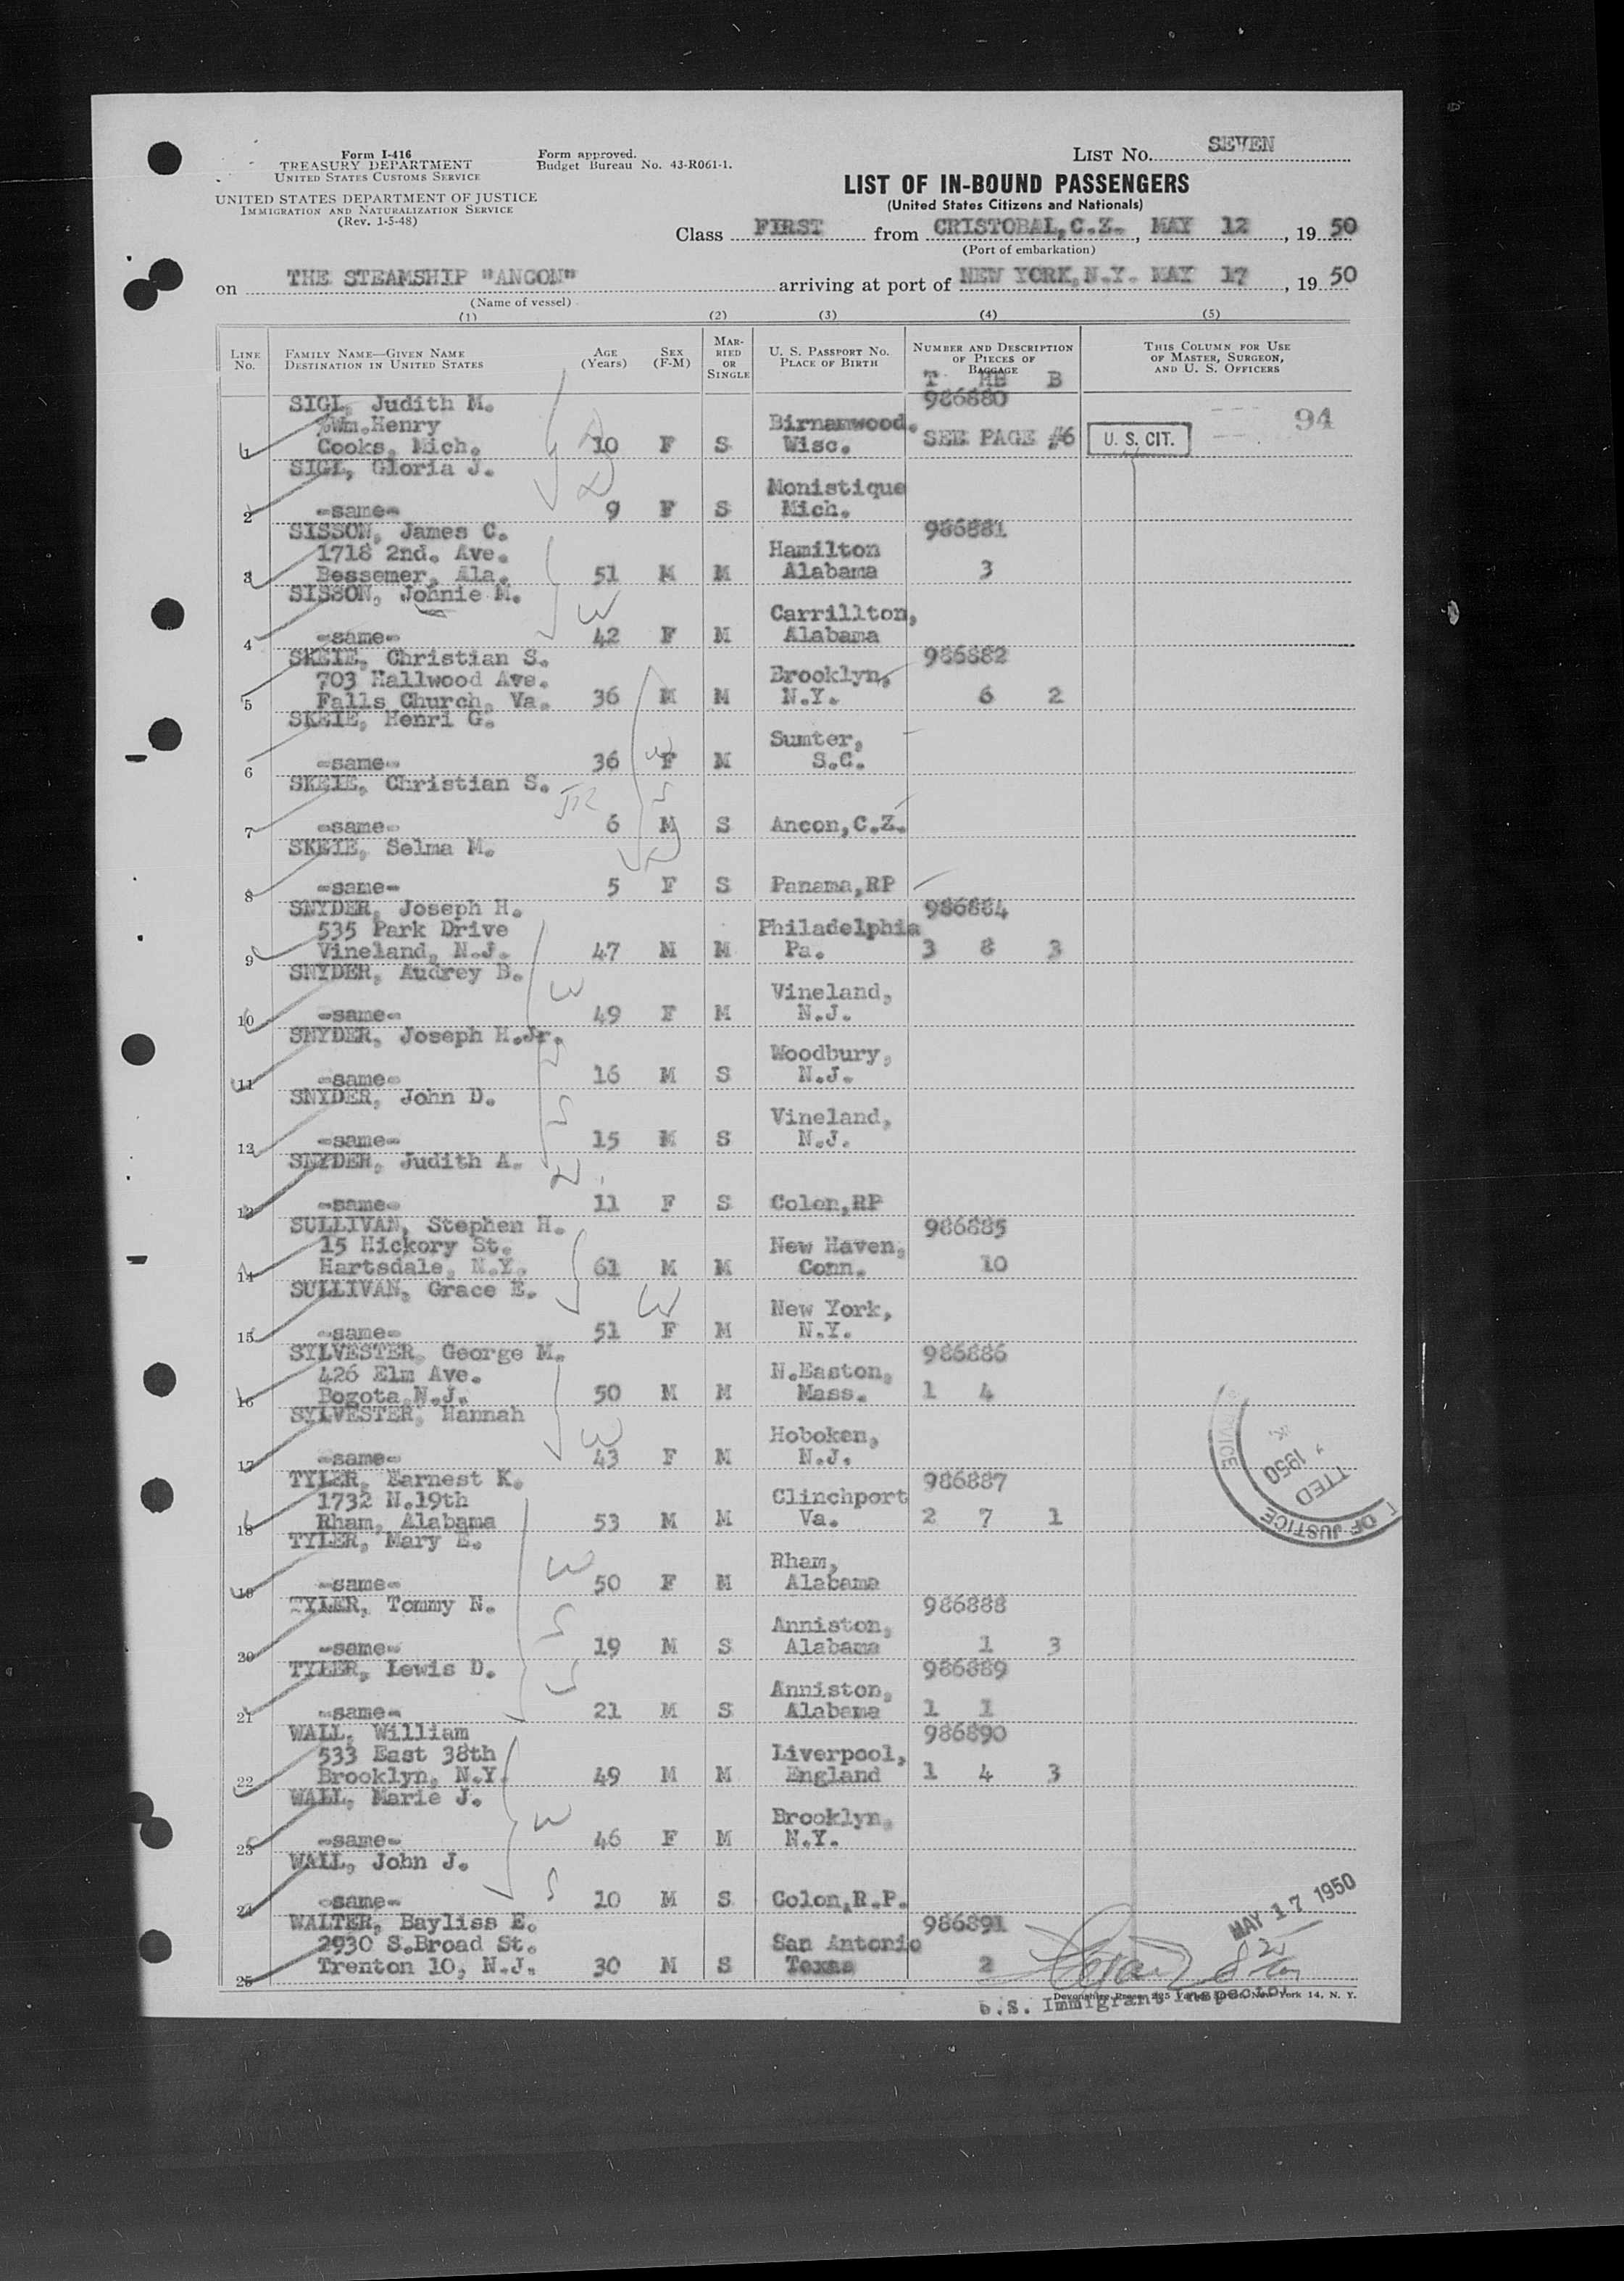 Form I-416
TREASURY DEPARTMENT
UNITED STATES CUSTOMS SERVICE
UNITED STATES DEPARTMENT OF JUSTICE
IMMIGRATION AND NATURALIZATION SERVICE
(Rev. 1-5-48)
Form approved.
Budget Bureau No. 43-R061-1.
LIST No. SEVEN
LIST OF IN-BOUND PASSENGERS
(United States Citizens and Nationals)
Class FIRST from CRISTOBAL, C.Z., MAY 12, 1950
(Port of embarkation)
on THE STEAMSHIP "ANCON" arriving at port of NEW YORK, N.Y. MAY 17, 1950
(Name of vessel)
(1) (2) (3) (4) (5)
LINE No. FAMILY NAME—GIVEN NAME DESTINATION IN UNITED STATES AGE (Years) SEX (F-M) MARRIED OR SINGLE U. S. PASSPORT No. PLACE OF BIRTH NUMBER AND DESCRIPTION OF PIECES OF BAGGAGE THIS COLUMN FOR USE OF MASTER, SURGEON, AND U. S. OFFICERS
T HB B
SIGL, Judith M. 986880
%Wm.Henry Birnamwood.
1 Cooks, Mich. 10 F S Wisc. SEE PAGE #6 U. S. CIT. 94
SIGL, Gloria J.
Monistique
2 -same- 9 F S Mich.
SISSON, James C. 986881
1718 2nd. Ave. Hamilton
3 Bessemer, Ala. 51 M M Alabama 3
SISSON, Johnie M.
W Carrillton,
4 -same- 42 F M Alabama
SKEIE, Christian S. 986882
703 Hallwood Ave. Brooklyn,
5 Falls Church, Va. 36 M M N.Y. 6 2
SKEIE, Henri G.
Sumter,
6 -same- 36 W F M S.C.
SKEIE, Christian S. JR
S
7 -same- 6 M S Ancon,C.Z.
SKEIE, Selma M.
D
8 -same- 5 F S Panama,RP
SNYDER, Joseph H. 986884
535 Park Drive Philadelphia
9 Vineland, N.J. 47 M M Pa. 3 8 3
SNYDER, Audrey B.
W Vineland,
10 -same- 49 F M N.J.
SNYDER, Joseph H.Jr.
S Woodbury,
11 -same- 16 M S N.J.
SNYDER, John D.
S Vineland,
12 -same- 15 M S N.J.
SNYDER, Judith A.
D
13 -same- 11 F S Colon,RP
SULLIVAN, Stephen H. 986885
15 Hickory St. New Haven,
14 Hartsdale, N.Y. 61 M M Conn. 10
SULLIVAN, Grace E.
W New York,
15 -same- 51 F M N.Y.
SYLVESTER, George M. 986886
426 Elm Ave. N.Easton,
16 Bogota,N.J. 50 M M Mass. 1 4
SYLVESTER, Hannah
W Hoboken,
17 -same- 43 F M N.J.
TYLER, Earnest K. 986887
1732 N.19th Clinchport
18 Rham, Alabama 53 M M Va. 2 7 1
TYLER, Mary E.
W Rham,
19 -same- 50 F M Alabama
TYLER, Tommy N. 986888
S Anniston,
20 -same- 19 M S Alabama 1 3
TYLER, Lewis D. 986889
S Anniston,
21 -same- 21 M S Alabama 1 1
WALL, William 986890
533 East 38th Liverpool,
22 Brooklyn, N.Y. 49 M M England 1 4 3
WALL, Marie J.
W Brooklyn,
23 -same- 46 F M N.Y.
WALL, John J.
S
24 -same- 10 M S Colon,R.P.
WALTER, Bayliss E. 986891
2930 S.Broad St. San Antonio
25 Trenton 10, N.J. 30 M S Texas 2
1950
TTED
OF JUSTICE
MAY 17 1950
U.S. Immigrant Inspector
York 14, N. Y.